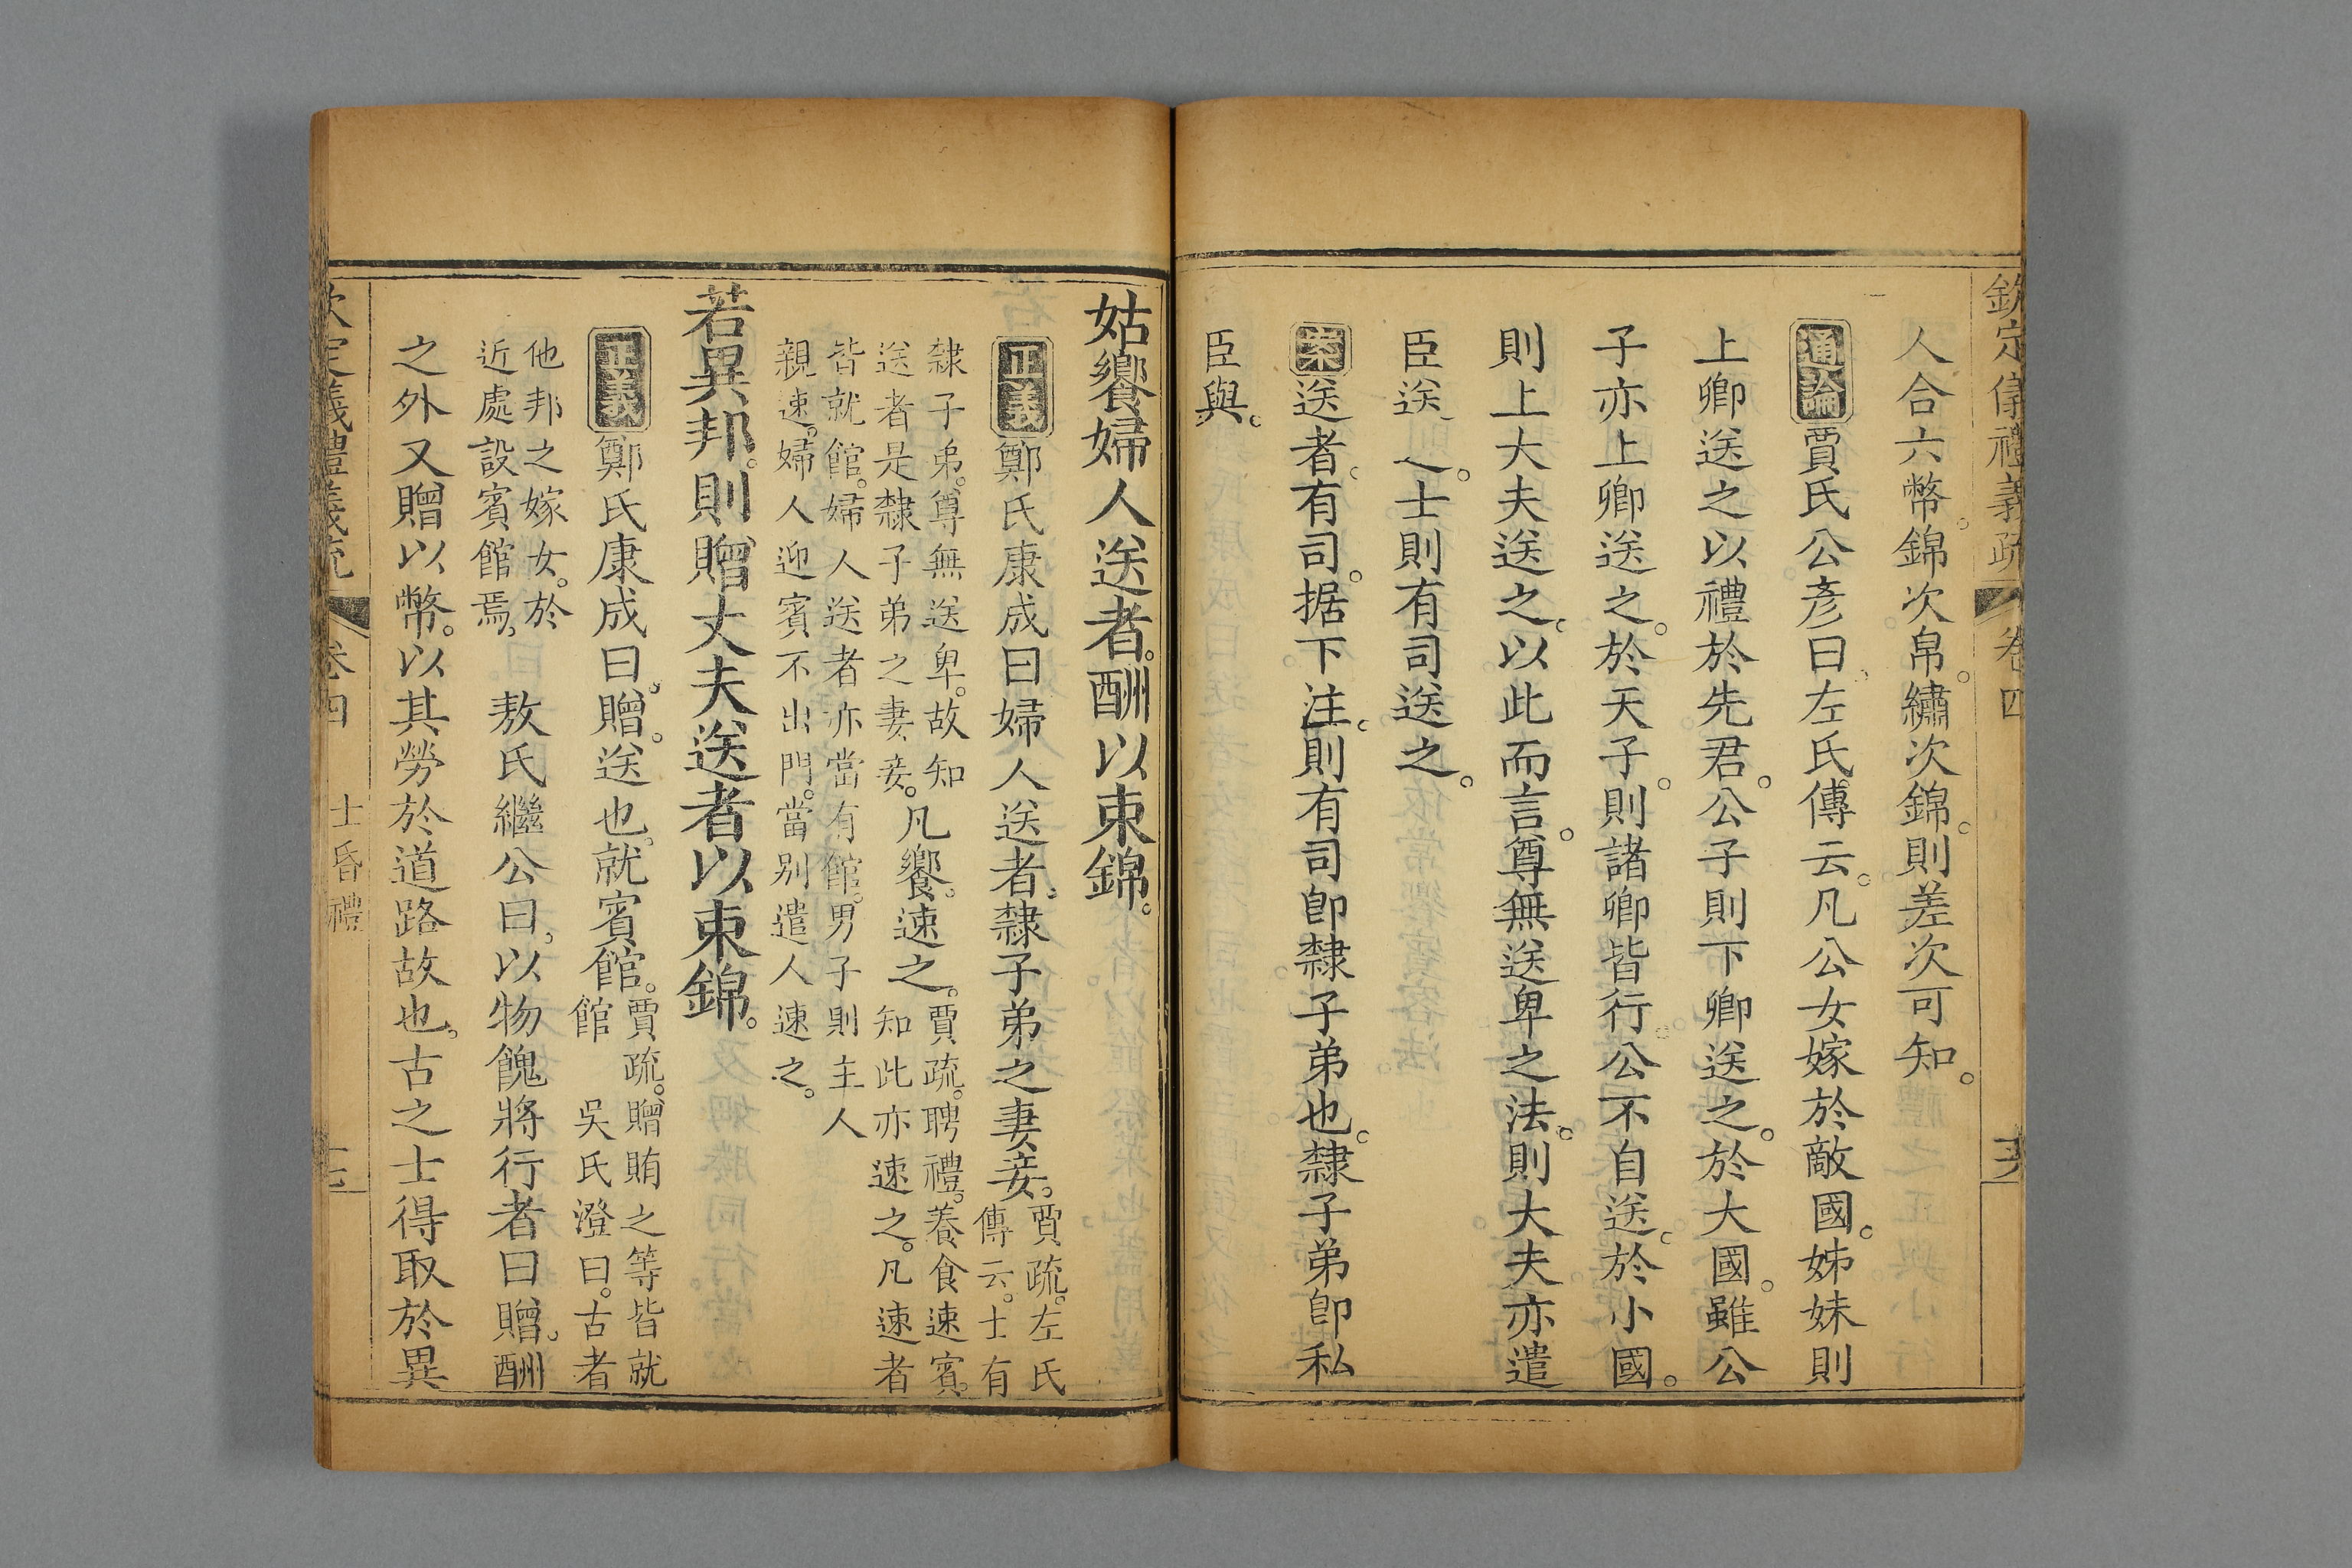 欽定儀禮義疏 卷四
人合六幣。錦次帛。繡次錦。則差次可知。
通論賈氏公彥曰。左氏傳云。凡公女嫁於敵國。姊妹則
上卿送之以禮於先君。公子則下卿送之。於大國。雖公
子亦上卿送之。於天子。則諸卿皆行。公不自送。於小國。
則上大夫送之。以此而言。尊無送卑之法。則大夫亦遣
臣送之。士則有司送之。
案送者。有司。据下注。則有司卽隸子弟也。隸子弟卽私
臣與。
姑饗婦人送者。酬以束錦。
正義鄭氏康成曰婦人送者。隸子弟之妻妾。賈疏。左氏
傳云。士有
隸子弟。尊無送卑。故知
送者是隸子弟之妻妾。凡饗。速之。賈疏。聘禮。養食速賓。
知此亦速之。凡速者
皆就館。婦人送者亦當有館。男子則主人
親速。婦人迎賓不出門。當別遣人速之。
若異邦。則贈丈夫送者以束錦。
正義鄭氏康成曰。贈。送也。就賓館。賈疏。贈賄之等皆就
館 吳氏澄曰。古者
他邦之嫁女。於
近處設賓館焉。敖氏繼公曰。以物餽將行者曰贈。酬
之外又贈以幣。以其勞於道路故也。古之士得取於異
欽定儀禮義疏 卷四 士昏禮